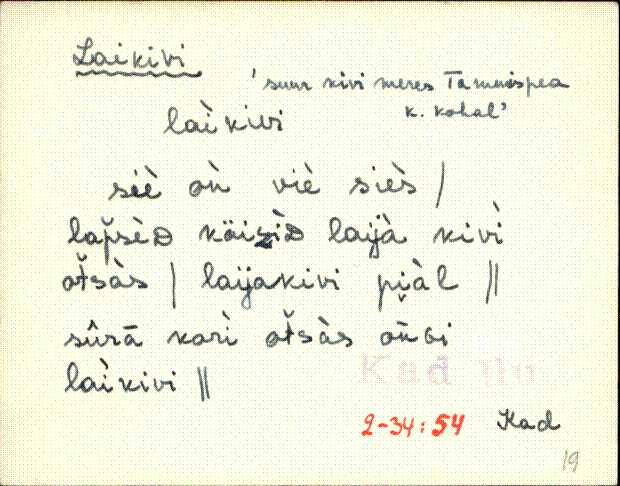 Laikivi
'suur kivi meres Tammispea
k. kohal'
laìkivi
siè òn viè siès |
lap̆sèD käisìD laijà kivì
ot̆sàs | laijakivi piàl ||
sûrā karì ot̆sàs
laìkivi ||
Kad Ilu
2-34:54 Kad
19